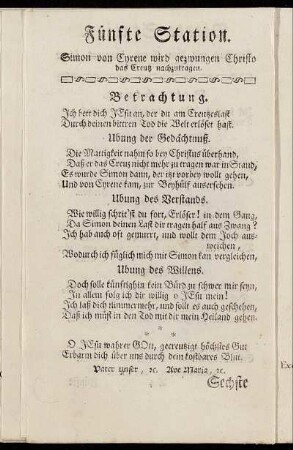 Fünfte Station.
Simon von Cyrene wird gezwungen Christo
das Creutz nachzutragen.
Betrachtung.
Ich bett dich JEsu an, der du am Creutzeslast
Durch deinen bittren Tod die Welt erlöset hast.
Ubung der Gedächtnuß.
Die Mattigkeit nahm so bey Christus überhand,
Daß er das Creutz nicht mehr zu tragen war in Stand,
Es wurde Simon dann, der itzt vorbey wollt gehen,
Und von Cyrene kam, zur Beyhülf ausersehen.
Ubung des Verstands.
Wie willig schritt'st du fort, Erlöser! in dem Gang,
Da Simon deinen Last dir tragen half aus Zwang?
Ich hab auch oft gemurrt, und wollt dem Joch aus-
weichen,
Wodurch ich füglich mich mit Simon kan vergleichen,
Ubung des Willens.
Doch solle künftighin kein Bürd zu schwer mir seyn,
In allem folg ich dir willig o JEsu mein!
Ich laß dich nimmermehr, und sollt es auch geschehen,
Daß ich müst in den Tod mit dir mein Heiland gehen.
* * *
O JEsu wahrer GOtt, gecreutzigt höchstes Gut
Erbarm dich über uns durch dein kostbares Blut.
Vater unser, ⁊c. Ave Maria, ⁊c.
Sechste